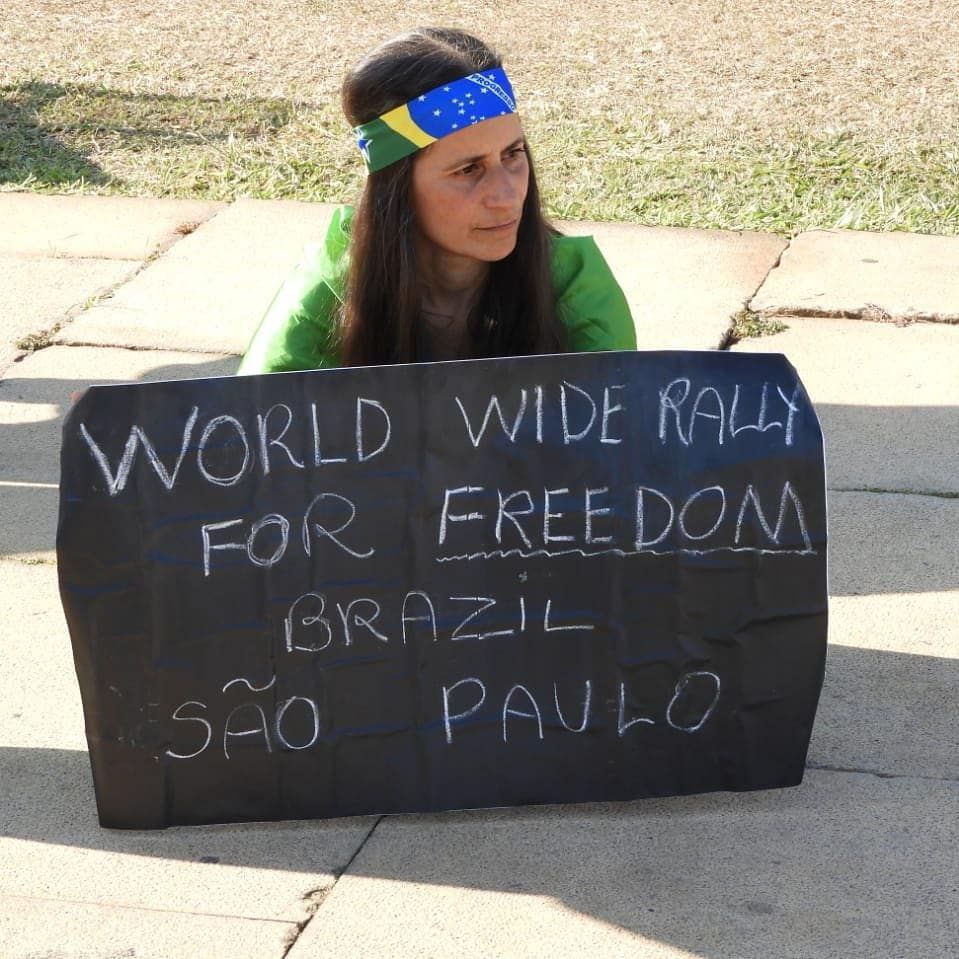 PROGRESSO
WORLD WIDE RALLY
FOR FREEDOM
BRAZIL
SÃO PAULO